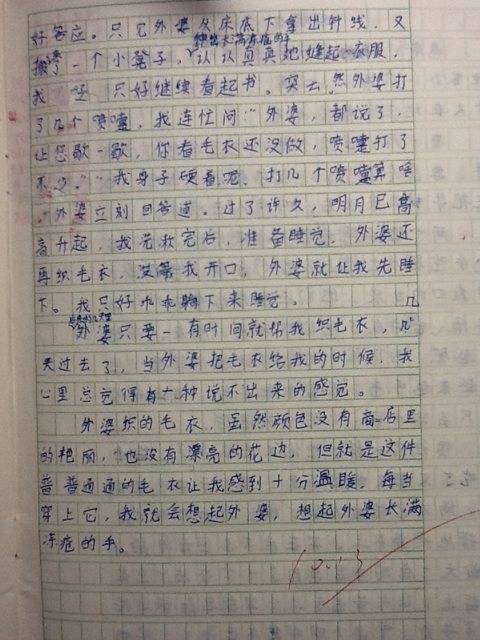 好答应。只见外婆从床底下拿出针线，又
伸出长满冻疮的手
搬了一个小凳子，认认真真地缝起衣服，
我只好继续看起书。突然外婆打
了几个喷嚏，我连忙问“外婆，都说了，
让您歇一歇，你看毛衣还没做，喷嚏打了
不少。”“我身子硬着呢，打几个喷嚏算啥
。”外婆立刻回答道。过了许久，明月已高
高升起，我洗漱完后，准备睡觉，外婆还
再织毛衣，没等我开口，外婆就让我先睡
下。我只好乖乖躺下来睡觉。
外婆只要一有时间就帮我织毛衣，几
天过去了，当外婆把毛衣给我的时候，我
心里总觉得有一种说不出来的感觉。
外婆织的毛衣，虽然颜色没有商店里
的艳丽，也没有漂亮的花边，但就是这件
普普通通的毛衣让我感到十分温暖。每当
穿上它，我就会想起外婆，想起外婆长满
冻疮的手。
10.13